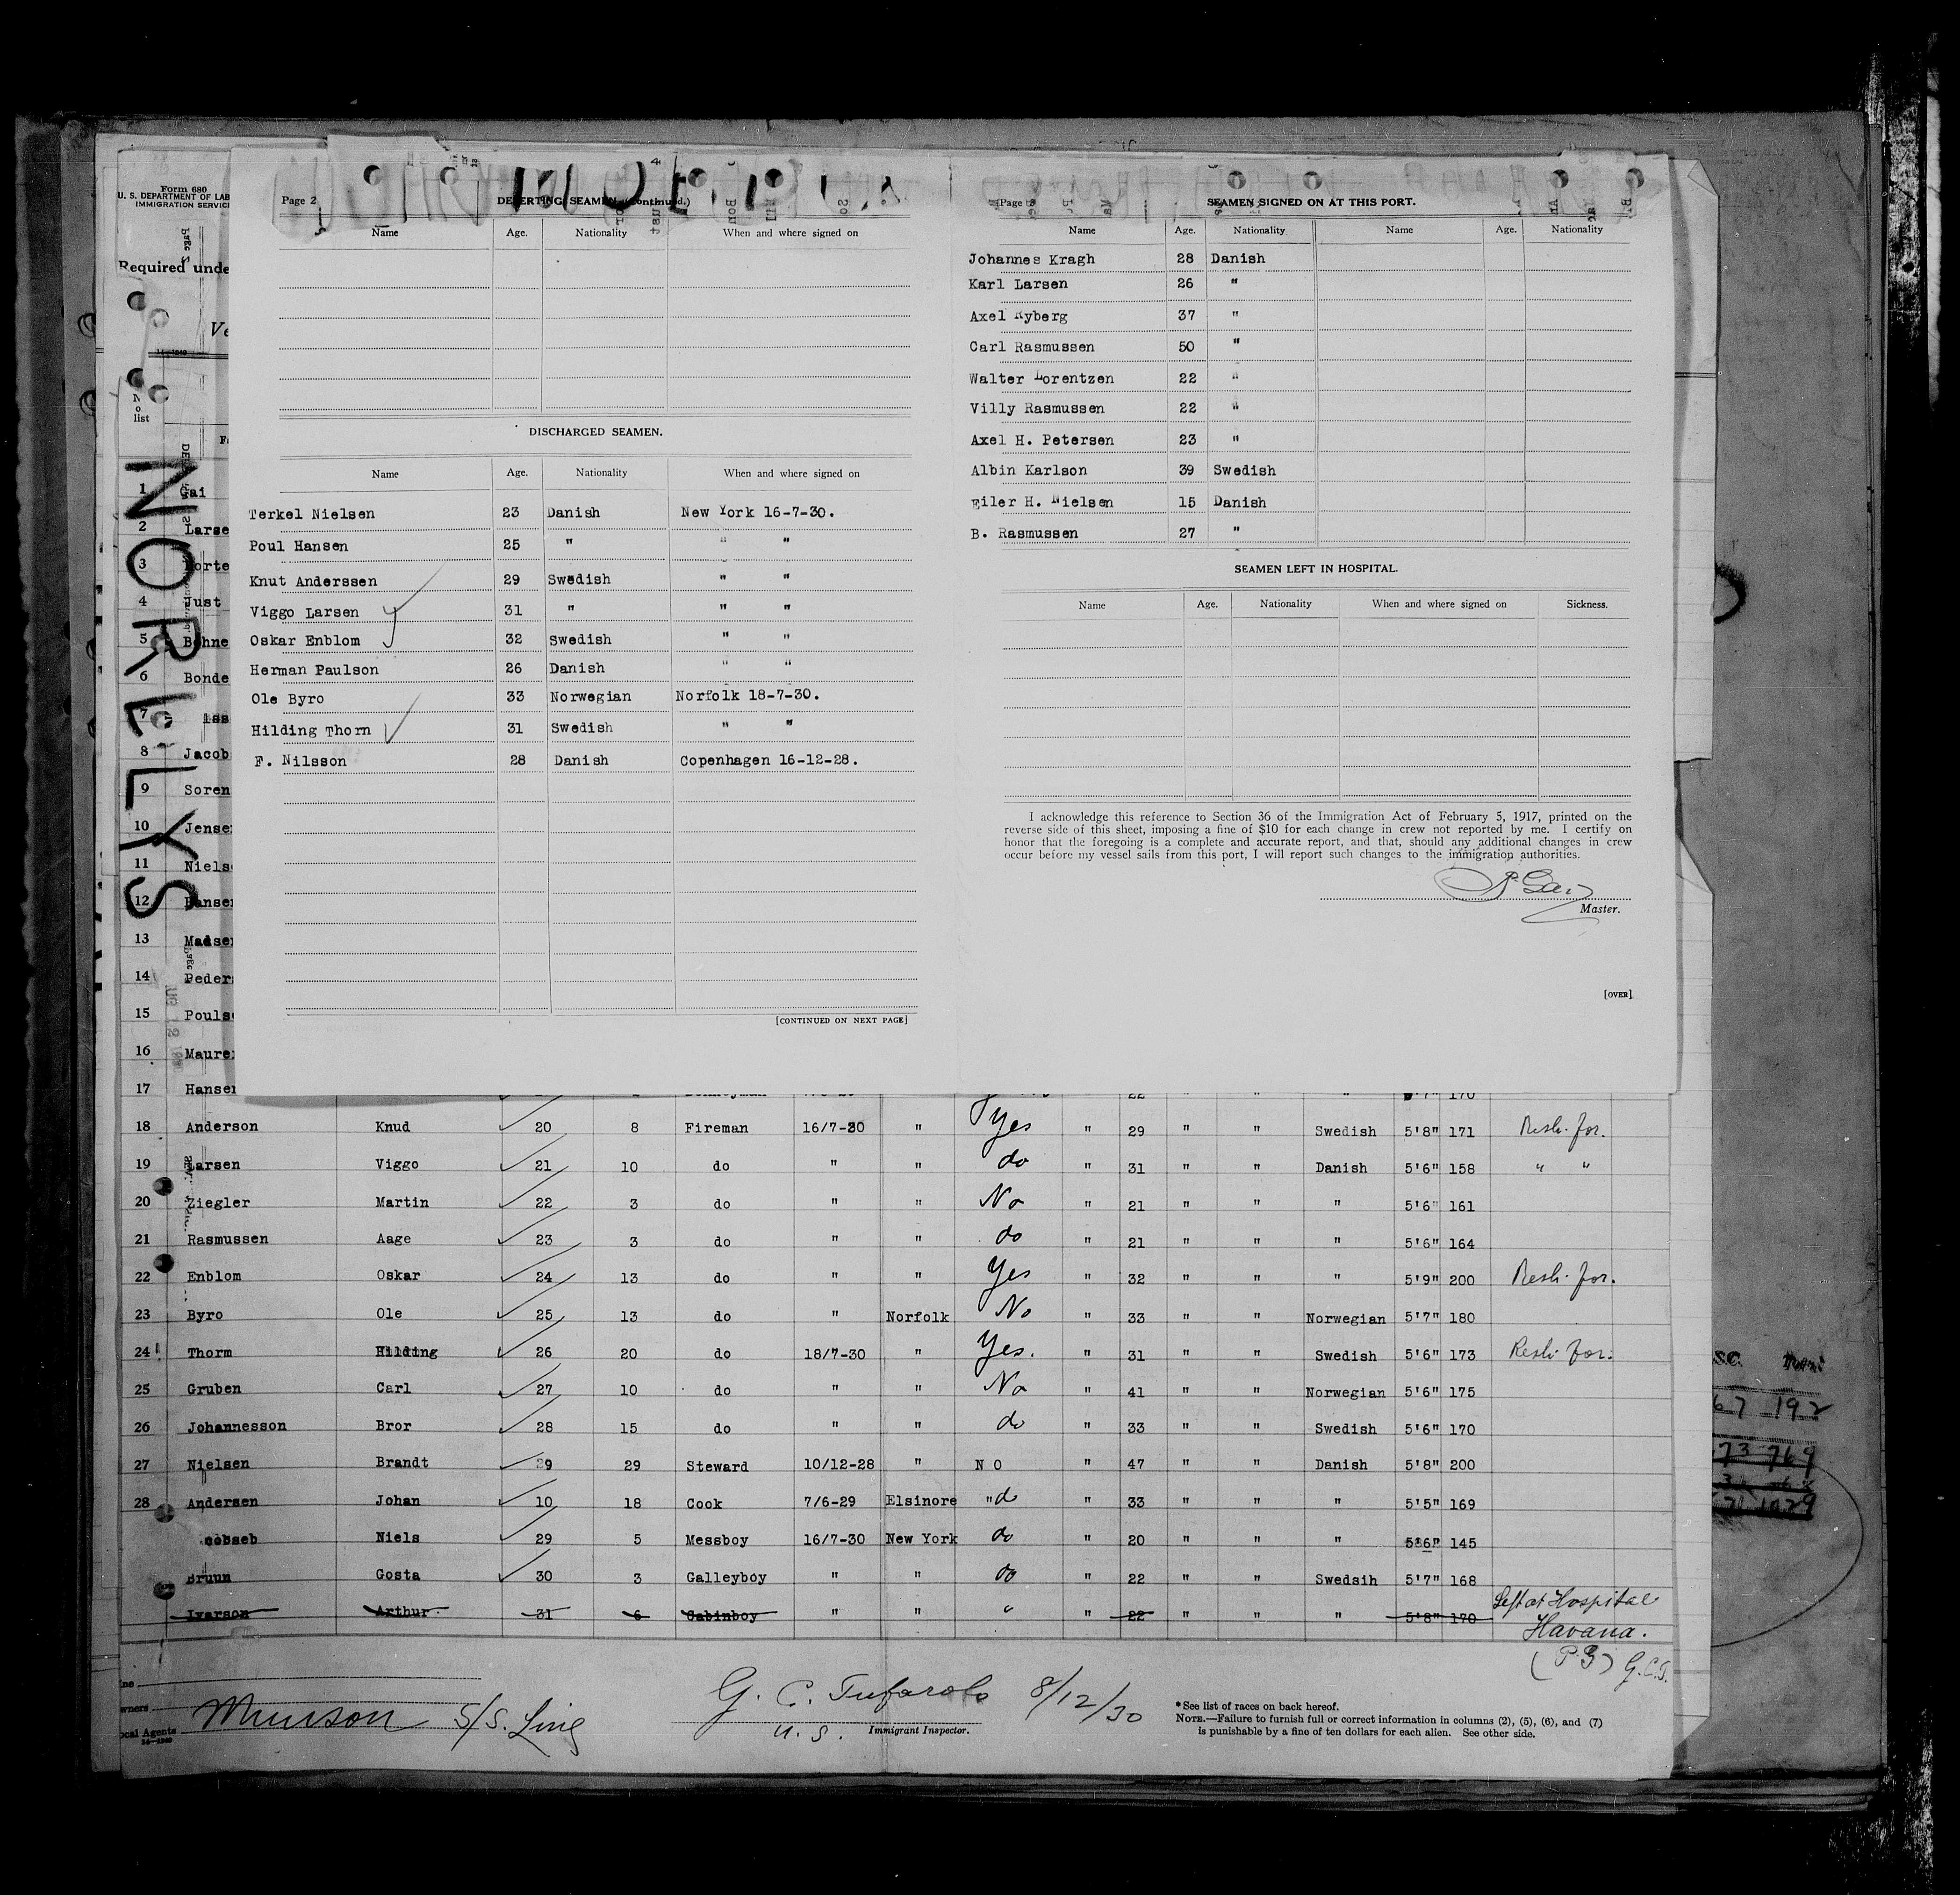 Form 680
U. S. DEPARTMENT OF LAB
IMMIGRATION SERVICE
Required unde
list
NORLYS
Page 2
DESERTING SEAMEN (Continued.)
Name Age. Nationality When and where signed on
DISCHARGED SEAMEN.
Name Age. Nationality When and where signed on
Terkel Nielsen 23 Danish New York 16-7-30.
Poul Hansen 25 " " "
Knut Anderssen 29 Swedish " "
Viggo Larsen 31 " " "
Oskar Enblom 32 Swedish " "
Herman Paulson 26 Danish " "
Ole Byro 33 Norwegian Norfolk 18-7-30.
Hilding Thorn 31 Swedish " "
F. Nilsson 28 Danish Copenhagen 16-12-28.
[CONTINUED ON NEXT PAGE]
SEAMEN SIGNED ON AT THIS PORT.
Name Age. Nationality Name Age. Nationality
Johannes Kragh 28 Danish
Karl Larsen 26 "
Axel Ryberg 37 "
Carl Rasmussen 50 "
Walter Lorentzen 22 "
Villy Rasmussen 22 "
Axel H. Petersen 23 "
Albin Karlson 39 Swedish
Eiler H. Nielsen 15 Danish
B. Rasmussen 27 "
SEAMEN LEFT IN HOSPITAL.
Name Age. Nationality When and where signed on Sickness.
I acknowledge this reference to Section 36 of the Immigration Act of February 5, 1917, printed on the
reverse side of this sheet, imposing a fine of $10 for each change in crew not reported by me. I certify on
honor that the foregoing is a complete and accurate report, and that, should any additional changes in crew
occur before my vessel sails from this port, I will report such changes to the immigration authorities.
Master.
[OVER]
1 Gai
2 Larse
3 Morte
4 Just
5 Bohne
6 Bonde
7
8 Jacob
9 Soren
10 Jense
11 Niels
12 Hansen
13 Madse
14 Peders
15 Pouls
16 Maure
17 Hansen
18 Anderson Knud 20 8 Fireman 16/7-30 " Yes " 29 " " Swedish 5'8" 171
19 Larsen Viggo 21 10 do " " do " 31 " " Danish 5'6" 158 " "
20 Ziegler Martin 22 3 do " " No " 21 " " " 5'6" 161
21 Rasmussen Aage 23 3 do " " do " 21 " " " 5'6" 164
22 Enblom Oskar 24 13 do " " Yes " 32 " " " 5'9" 200
23 Byro Ole 25 13 do " Norfolk No " 33 " " Norwegian 5'7" 180
24 Thorm Hilding 26 20 do 18/7-30 " Yes. " 31 " " Swedish 5'6" 173
25 Gruben Carl 27 10 do " " No " 41 " " Norwegian 5'6" 175
26 Johannesson Bror 28 15 do " " do " 33 " " Swedish 5'6" 170
27 Nielsen Brandt 29 29 Steward 10/12-28 " NO " 47 " " Danish 5'8" 200
28 Andersen Johan 10 18 Cook 7/6-29 Elsinore "do " 33 " " " 5'5" 169
cobseb Niels 29 5 Messboy 16/7-30 New York do " 20 " " " 5'6" 145
Bruun Gosta 30 3 Galleyboy " " do " 22 " " Swedsih 5'7" 168
Ivarson Arthur 31 6 Cabinboy " " " " 22 " " " 5'8" 170 Left at Hospital
Havana.
G.C.T.
Munson S/S. Line
G. C. Tufarolo 8/12/30
U. S. Immigrant Inspector.
* See list of races on back hereof.
NOTE.—Failure to furnish full or correct information in columns (2), (5), (6), and (7)
is punishable by a fine of ten dollars for each alien. See other side.